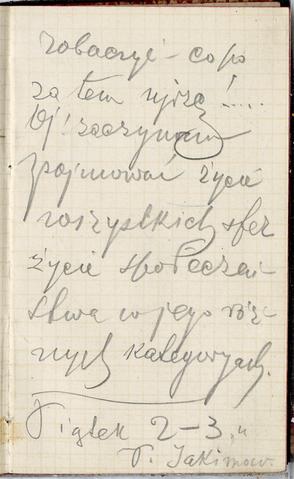 zobaczyć - co po
za tem ujrzę!....
Oj! zaczynam
pojmować życie
wszystkich sfer
życie społeczeń-
stwa w jego róż-
nych kategoryach.
Piątek 2-3 "
P. Jakimow.